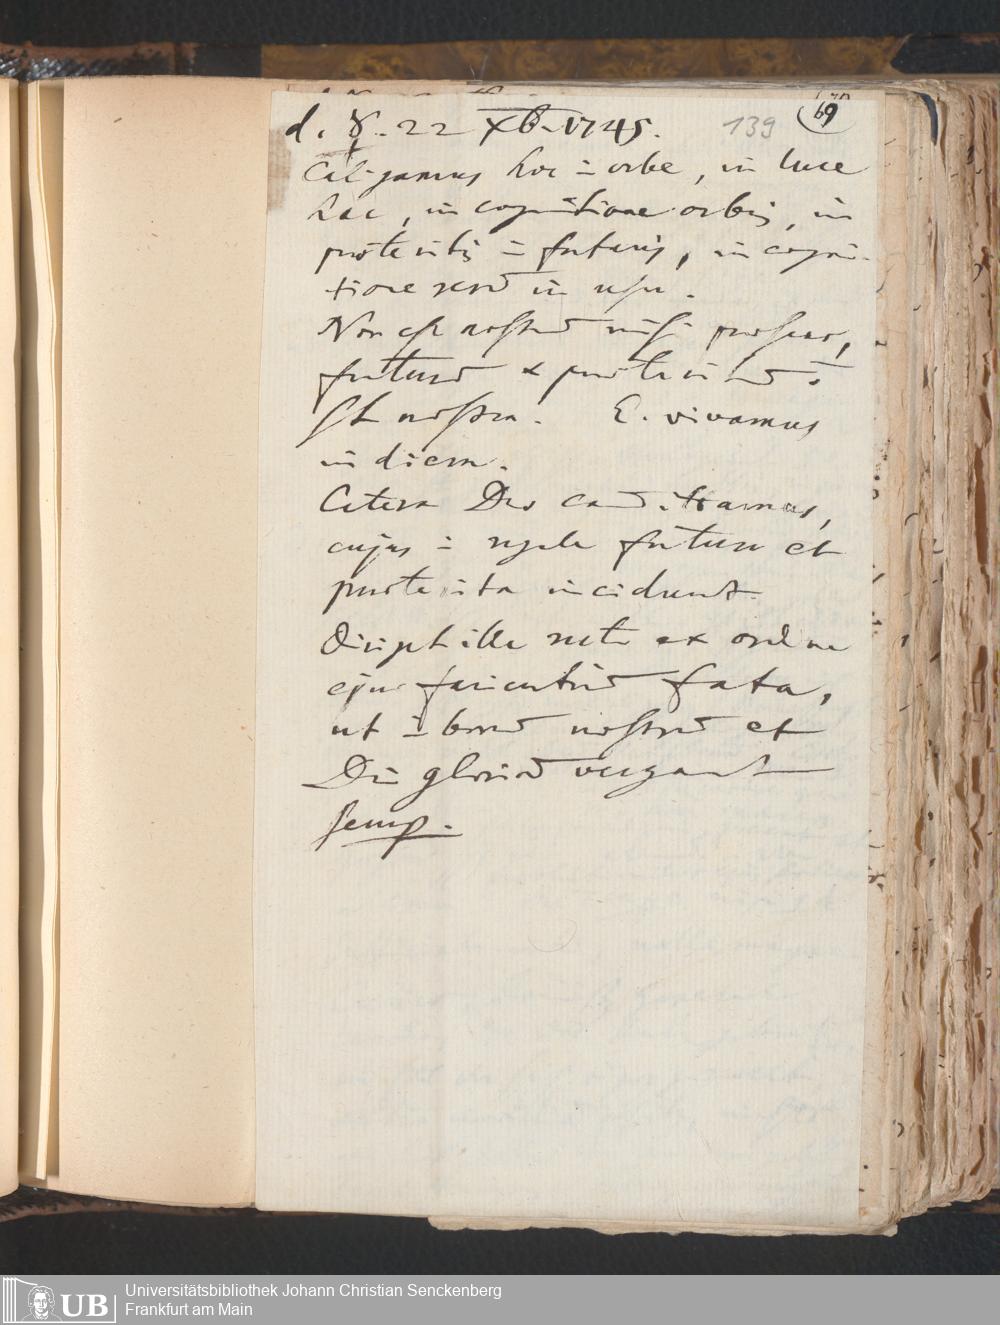 d. ☿. 22 Xb. 1745.
139
69
Caligamus hoc in orbe, in luce
hac, in cognitione orbis, in
præteritis in futuris, in cogni-
tione rerū in usu.
Non est nostrū nisi præsens,
futurū & præteritū ÷
st nostra. E. vivamus
in diem.
Cetera Deo
cujus in futura et
præterita incidunt.
Dirigat ille ex ordine
ejus fata,
ut in bonū nostrū et
Dei gloriā vergant
semp.
Universitätsbibliothek Johann Christian Senckenberg
Frankfurt am Main
UB